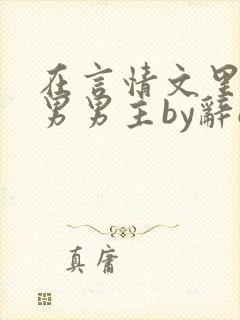 在言情文里
男男主by辞
真庸